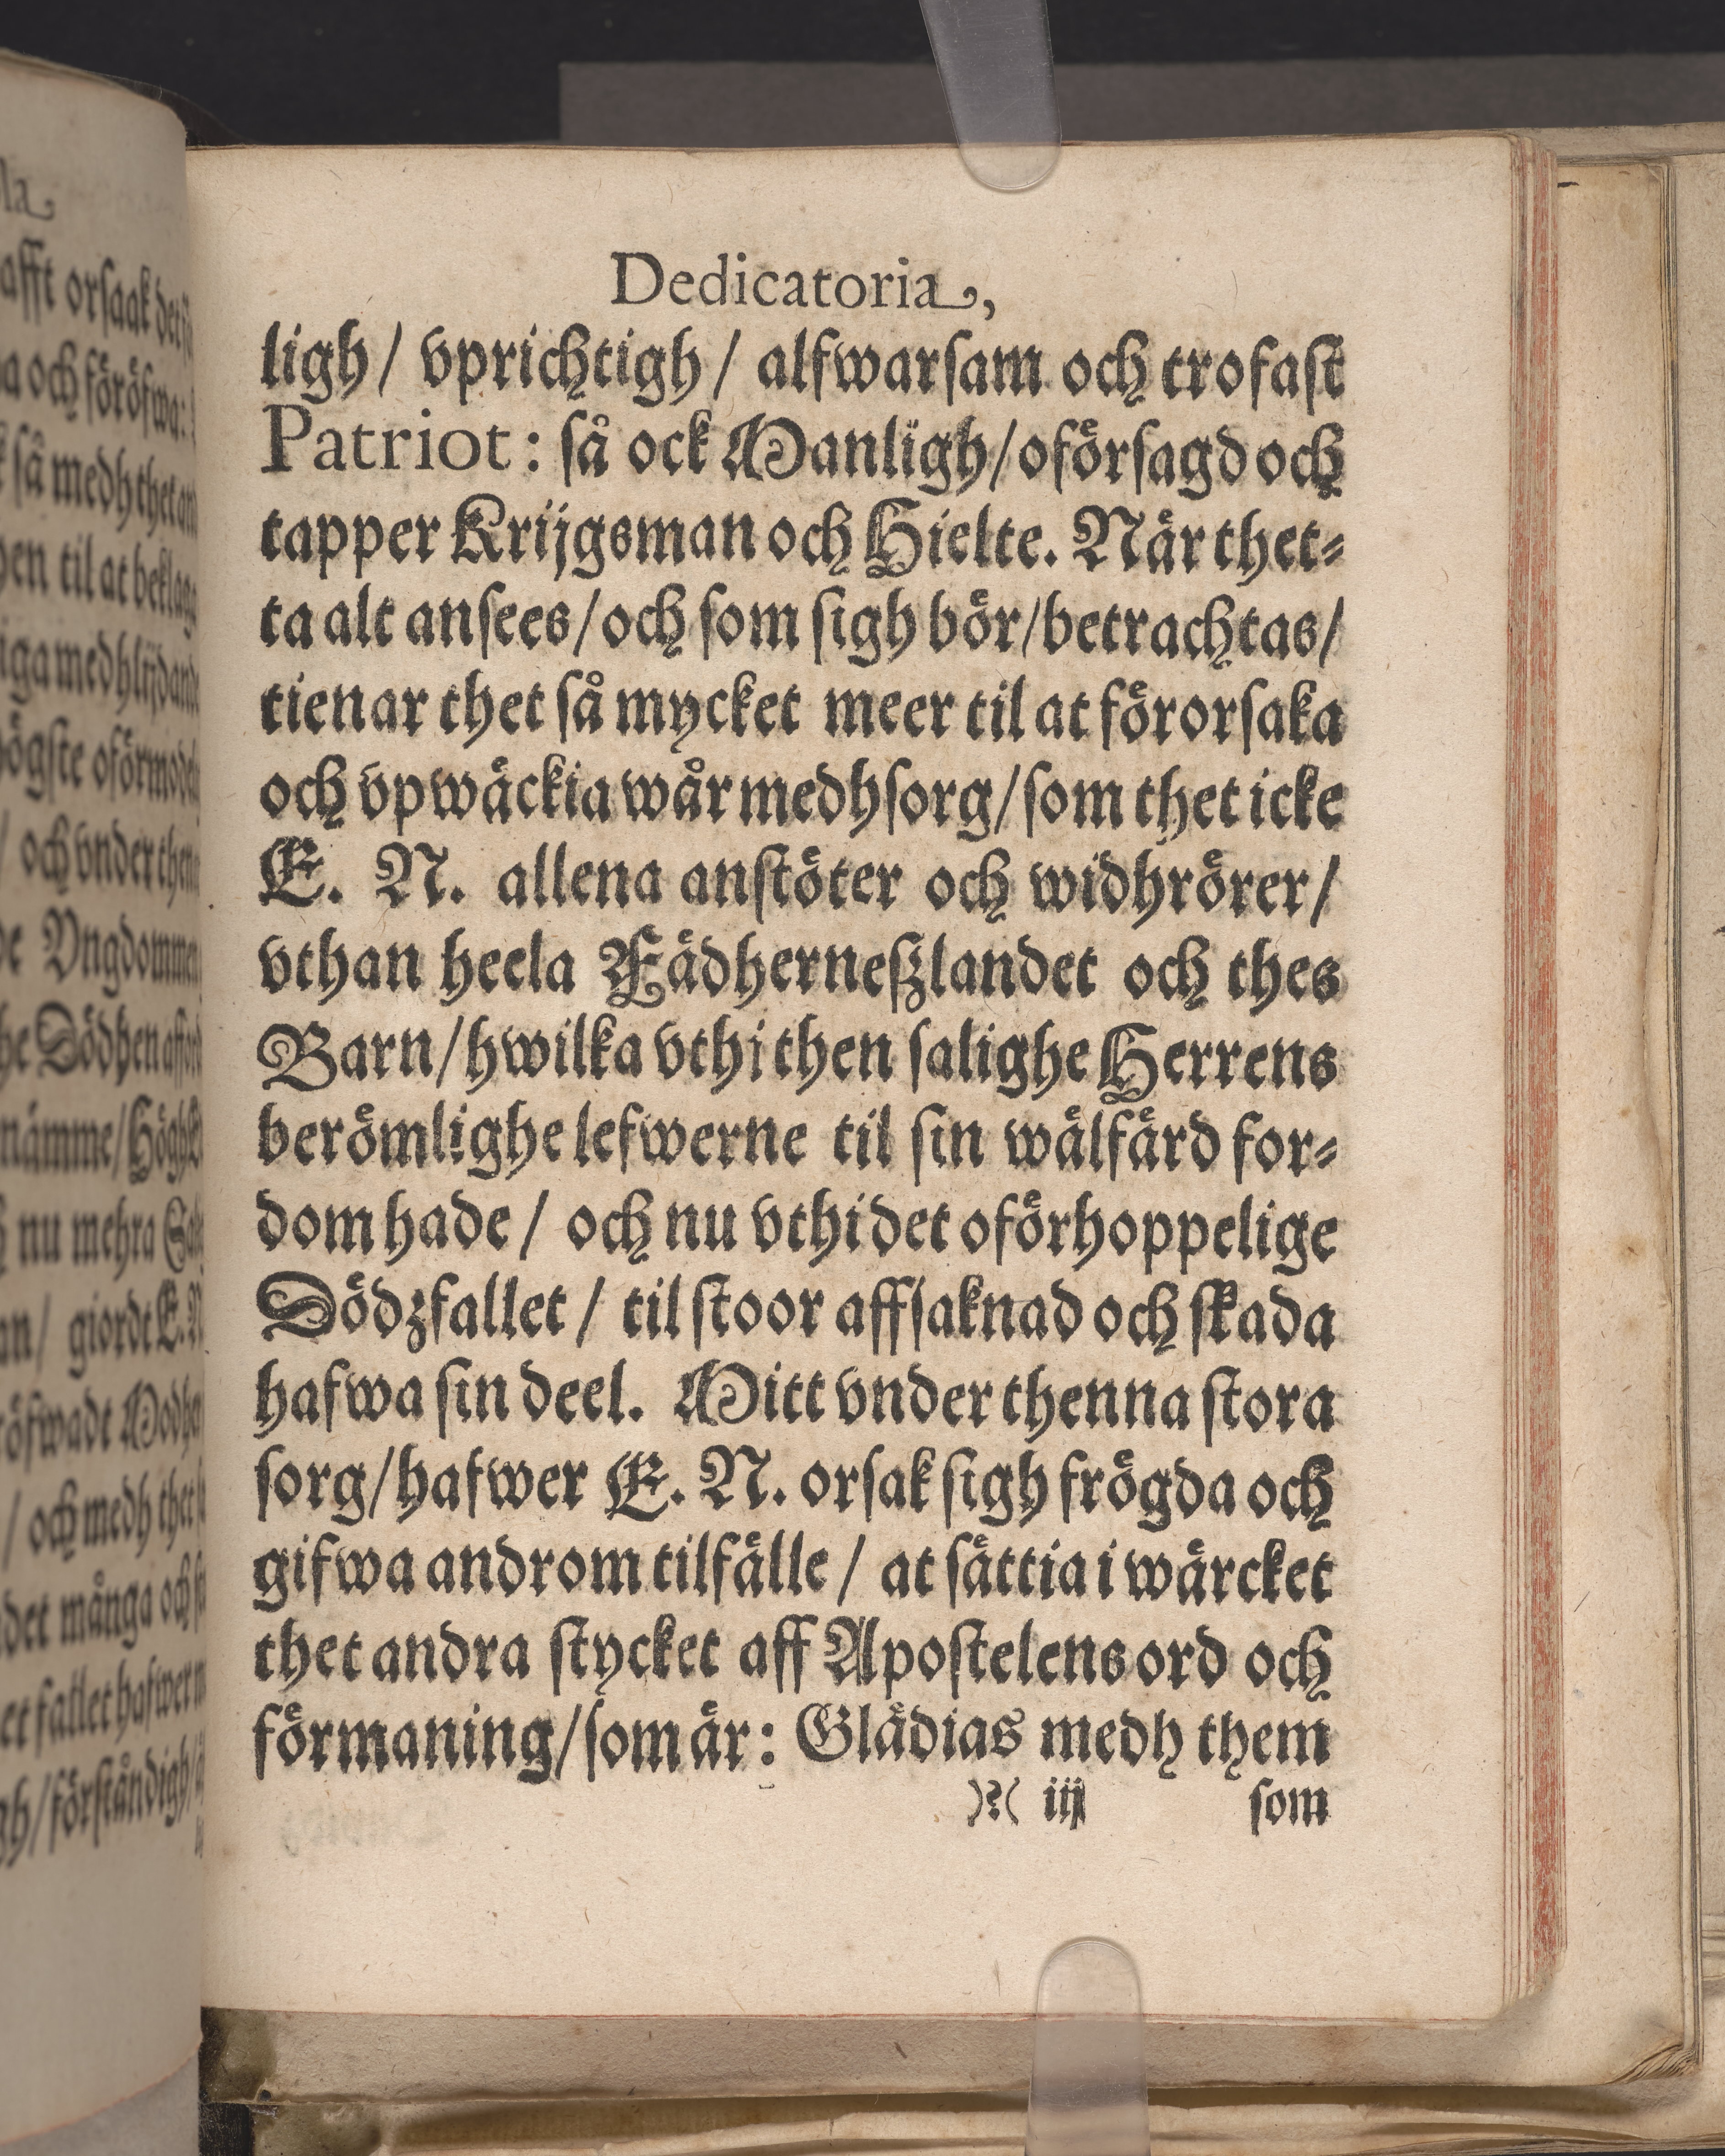 Dedicatoria,
ligh/ vprichtigh/ alfwarsam och trofast
Patriot: så ock Manligh/oförsagd och
tapper Krijgsman och Hielte. När thet-
ta alt ansees/och som sigh bör/betrachtas/
tienar thet så mycket meer til at förorsaka
och vpwäckia wår medhsorg/som thet icke
E. N. allena anstöter och widhrörer/
vthan heela Fädherneszlandet och thes
Barn/hwilka vthi then salighe Herrens
berömlighe lefwerne til sin wälfärd for-
dom hade/ och nu vthi det oförhoppelige
Dödzfallet/ til stoor affsaknad och skada
hafwa sin deel. Mitt vnder thenna stora
sorg/hafwer E. N. orsak sigh frögda och
gifwa androm tilfälle/ at sättia i wärcket
thet andra stycket aff Apostelens ord och
förmaning/som är: Glädias medh them
)?( iij som